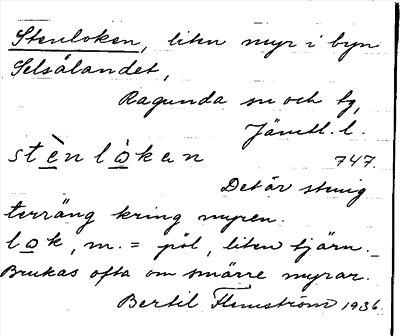 Stenloken, liten myr i byn
Selsålandet,
Ragunda sn och tg,
Jämtl. l.
stènlòkan 747.
Det är stenig
terräng kring myren.
lok, m. = pöl, liten tjärn._
Brukas ofta om smärre myrar.
Bertil Flemström 1936.